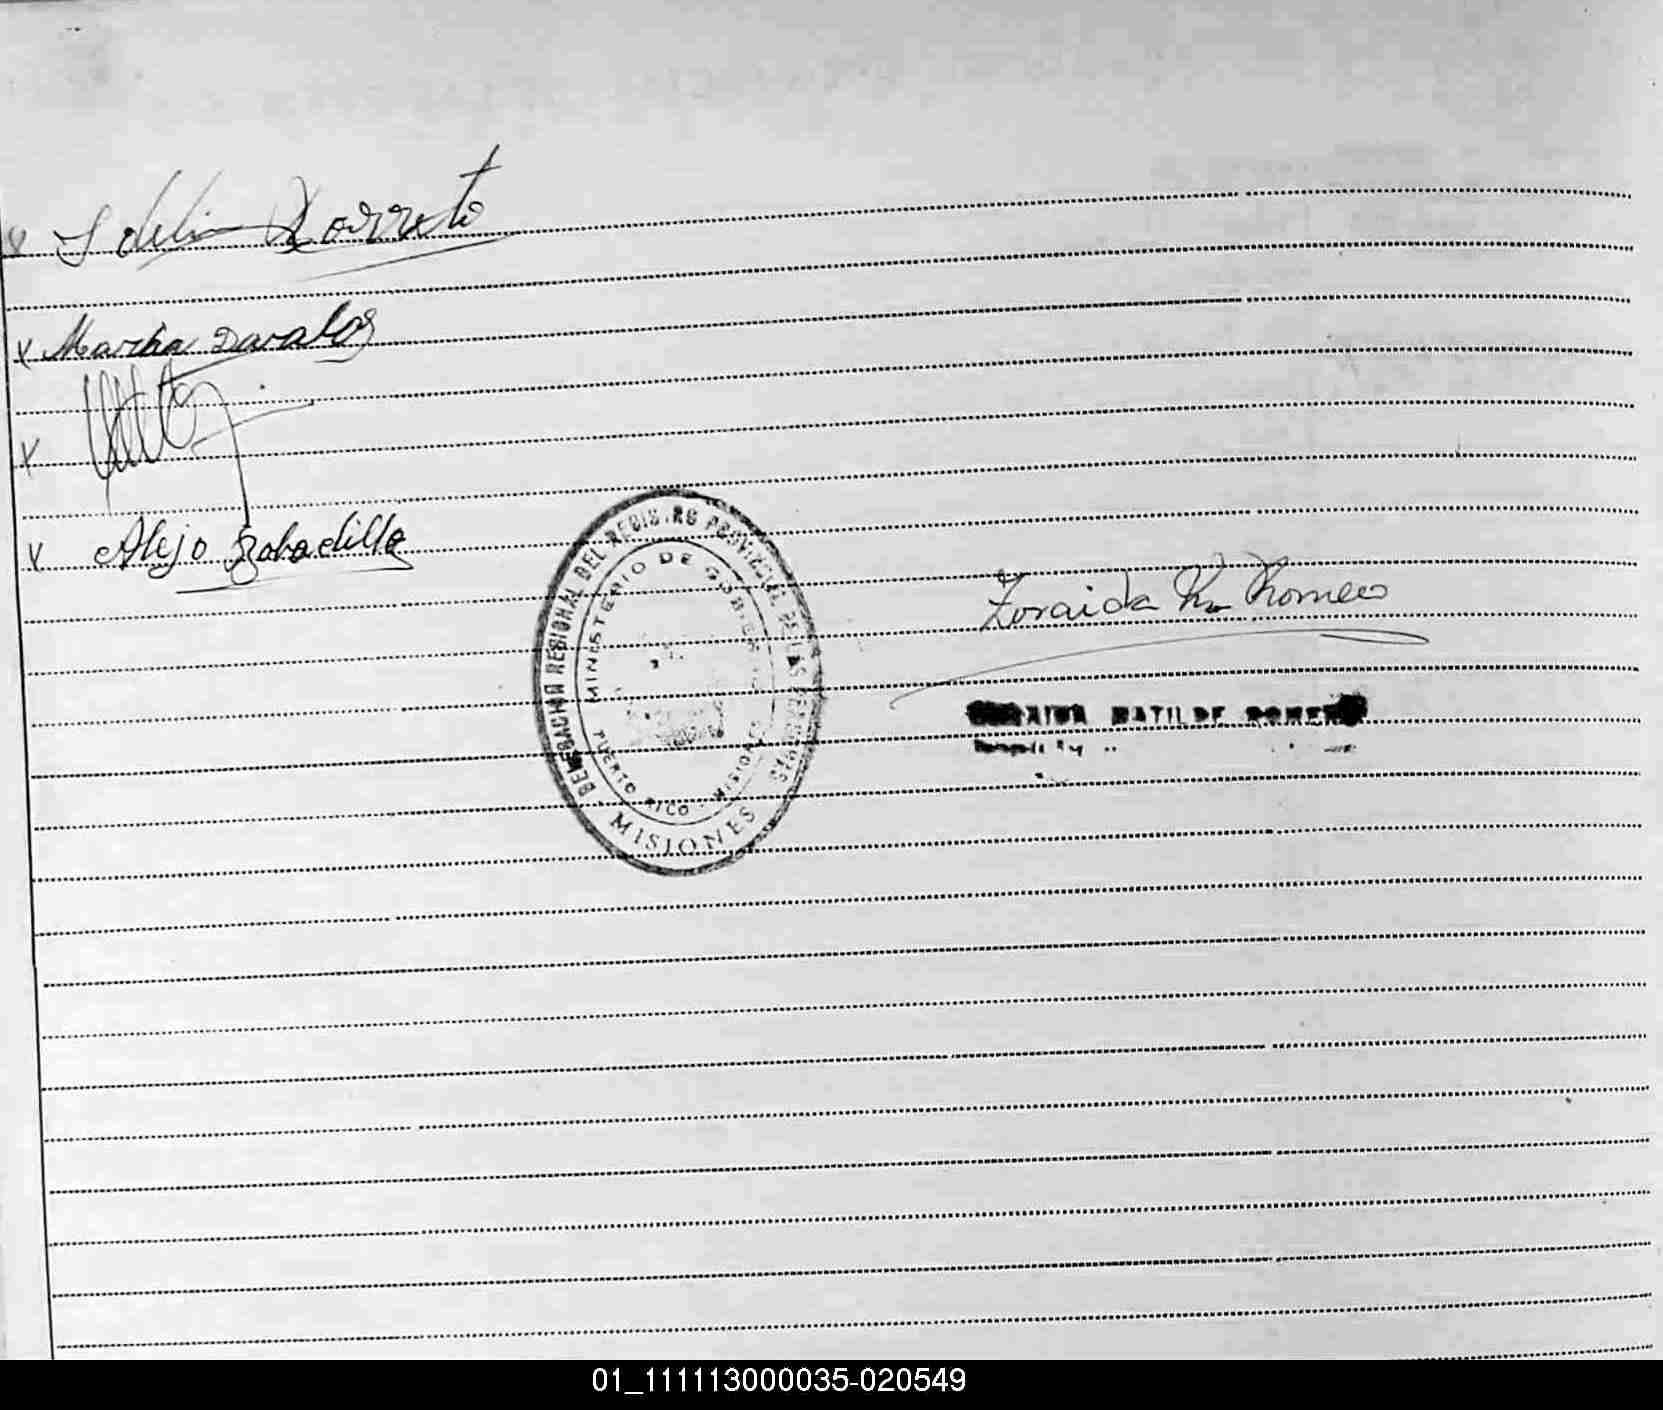 x
x Martha Davalos
x
x Alejo Bobadilla
DELEGACION REGIONAL DEL REGISTRO PROVINCIAL DE LAS PERSONAS
MINISTERIO DE GOBIERNO
PUERTO RICO - MISIONES
MISIONES
Zoraida M. Romero
ZORAIDA MATILDE ROMERO
01_111113000035-020549